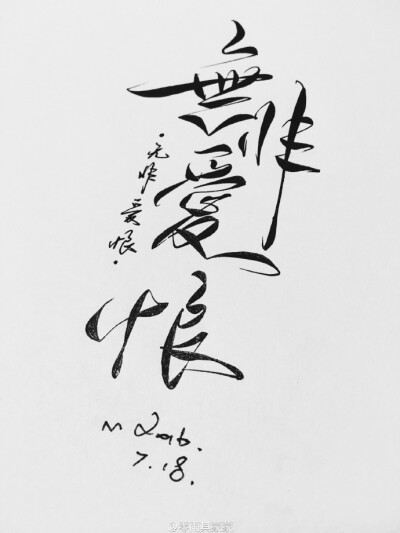 無非
愛
恨
·无非爱恨·
M 2016.
7.18.